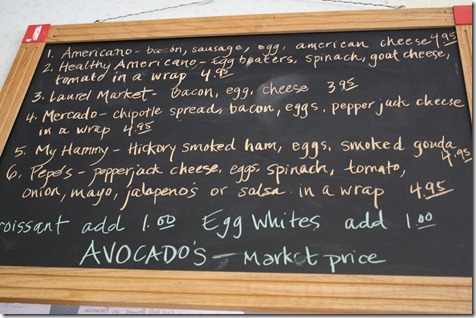 1. Americano - bacon, sausage, egg, american cheese 4.95
2. Healthy Americano - Egg beaters, spinach, goat cheese,
tomato in a wrap 4.95
3. Laurel Market - bacon, egg, cheese 3.95
4. Mercado - chipotle spread, bacon, eggs, pepper jack cheese
in a wrap 4.95
5. My Hammy - Hickory smoked ham, eggs, smoked gouda
4.95
6. Pepe's - pepperjack cheese, eggs, spinach, tomato,
onion, mayo, jalapeno's or salsa in a wrap 4.95
roissant add 1.00 Egg Whites add 1.00
AVOCADO'S - market price